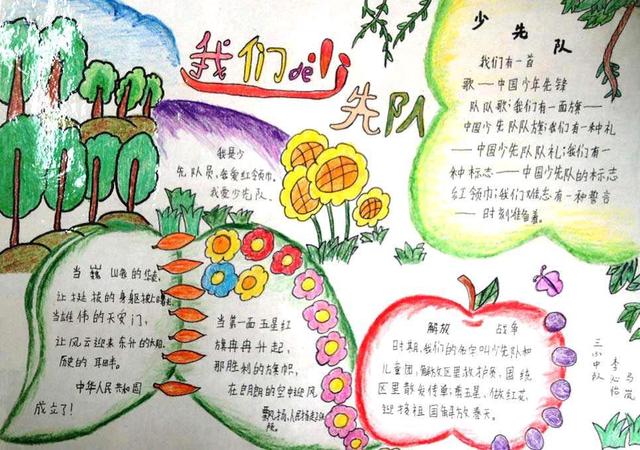 我们de少
先队
少先队
我们有一首
歌——中国少年先锋
队队歌；我们有一面旗——
中国少先队队旗；我们有一种礼
——中国少先队队礼；我们有一
种标志——中国少先队的标志
红领巾；我们难忘有一种誓言
——时刻准备着。
我是少
先队员，我爱红领巾。
我爱少先队。
当巍巍的华表，
让挺拔的身躯披上
当雄伟的天安门，
让风云迎来东升的太阳，
历史的
中华人民共和国
成立了！
当第一面五星红
旗冉冉升起，
那胜利的旗帜，
在朗朗的空中迎风
飘扬，人民
解放 战争
时期，我们的名字叫少先队和
儿童团，解放区里放护哨，围绕
区里散发传单；秉五星、做红花，
迎接祖国解放春天。
三小中队
李沁怡
马岚